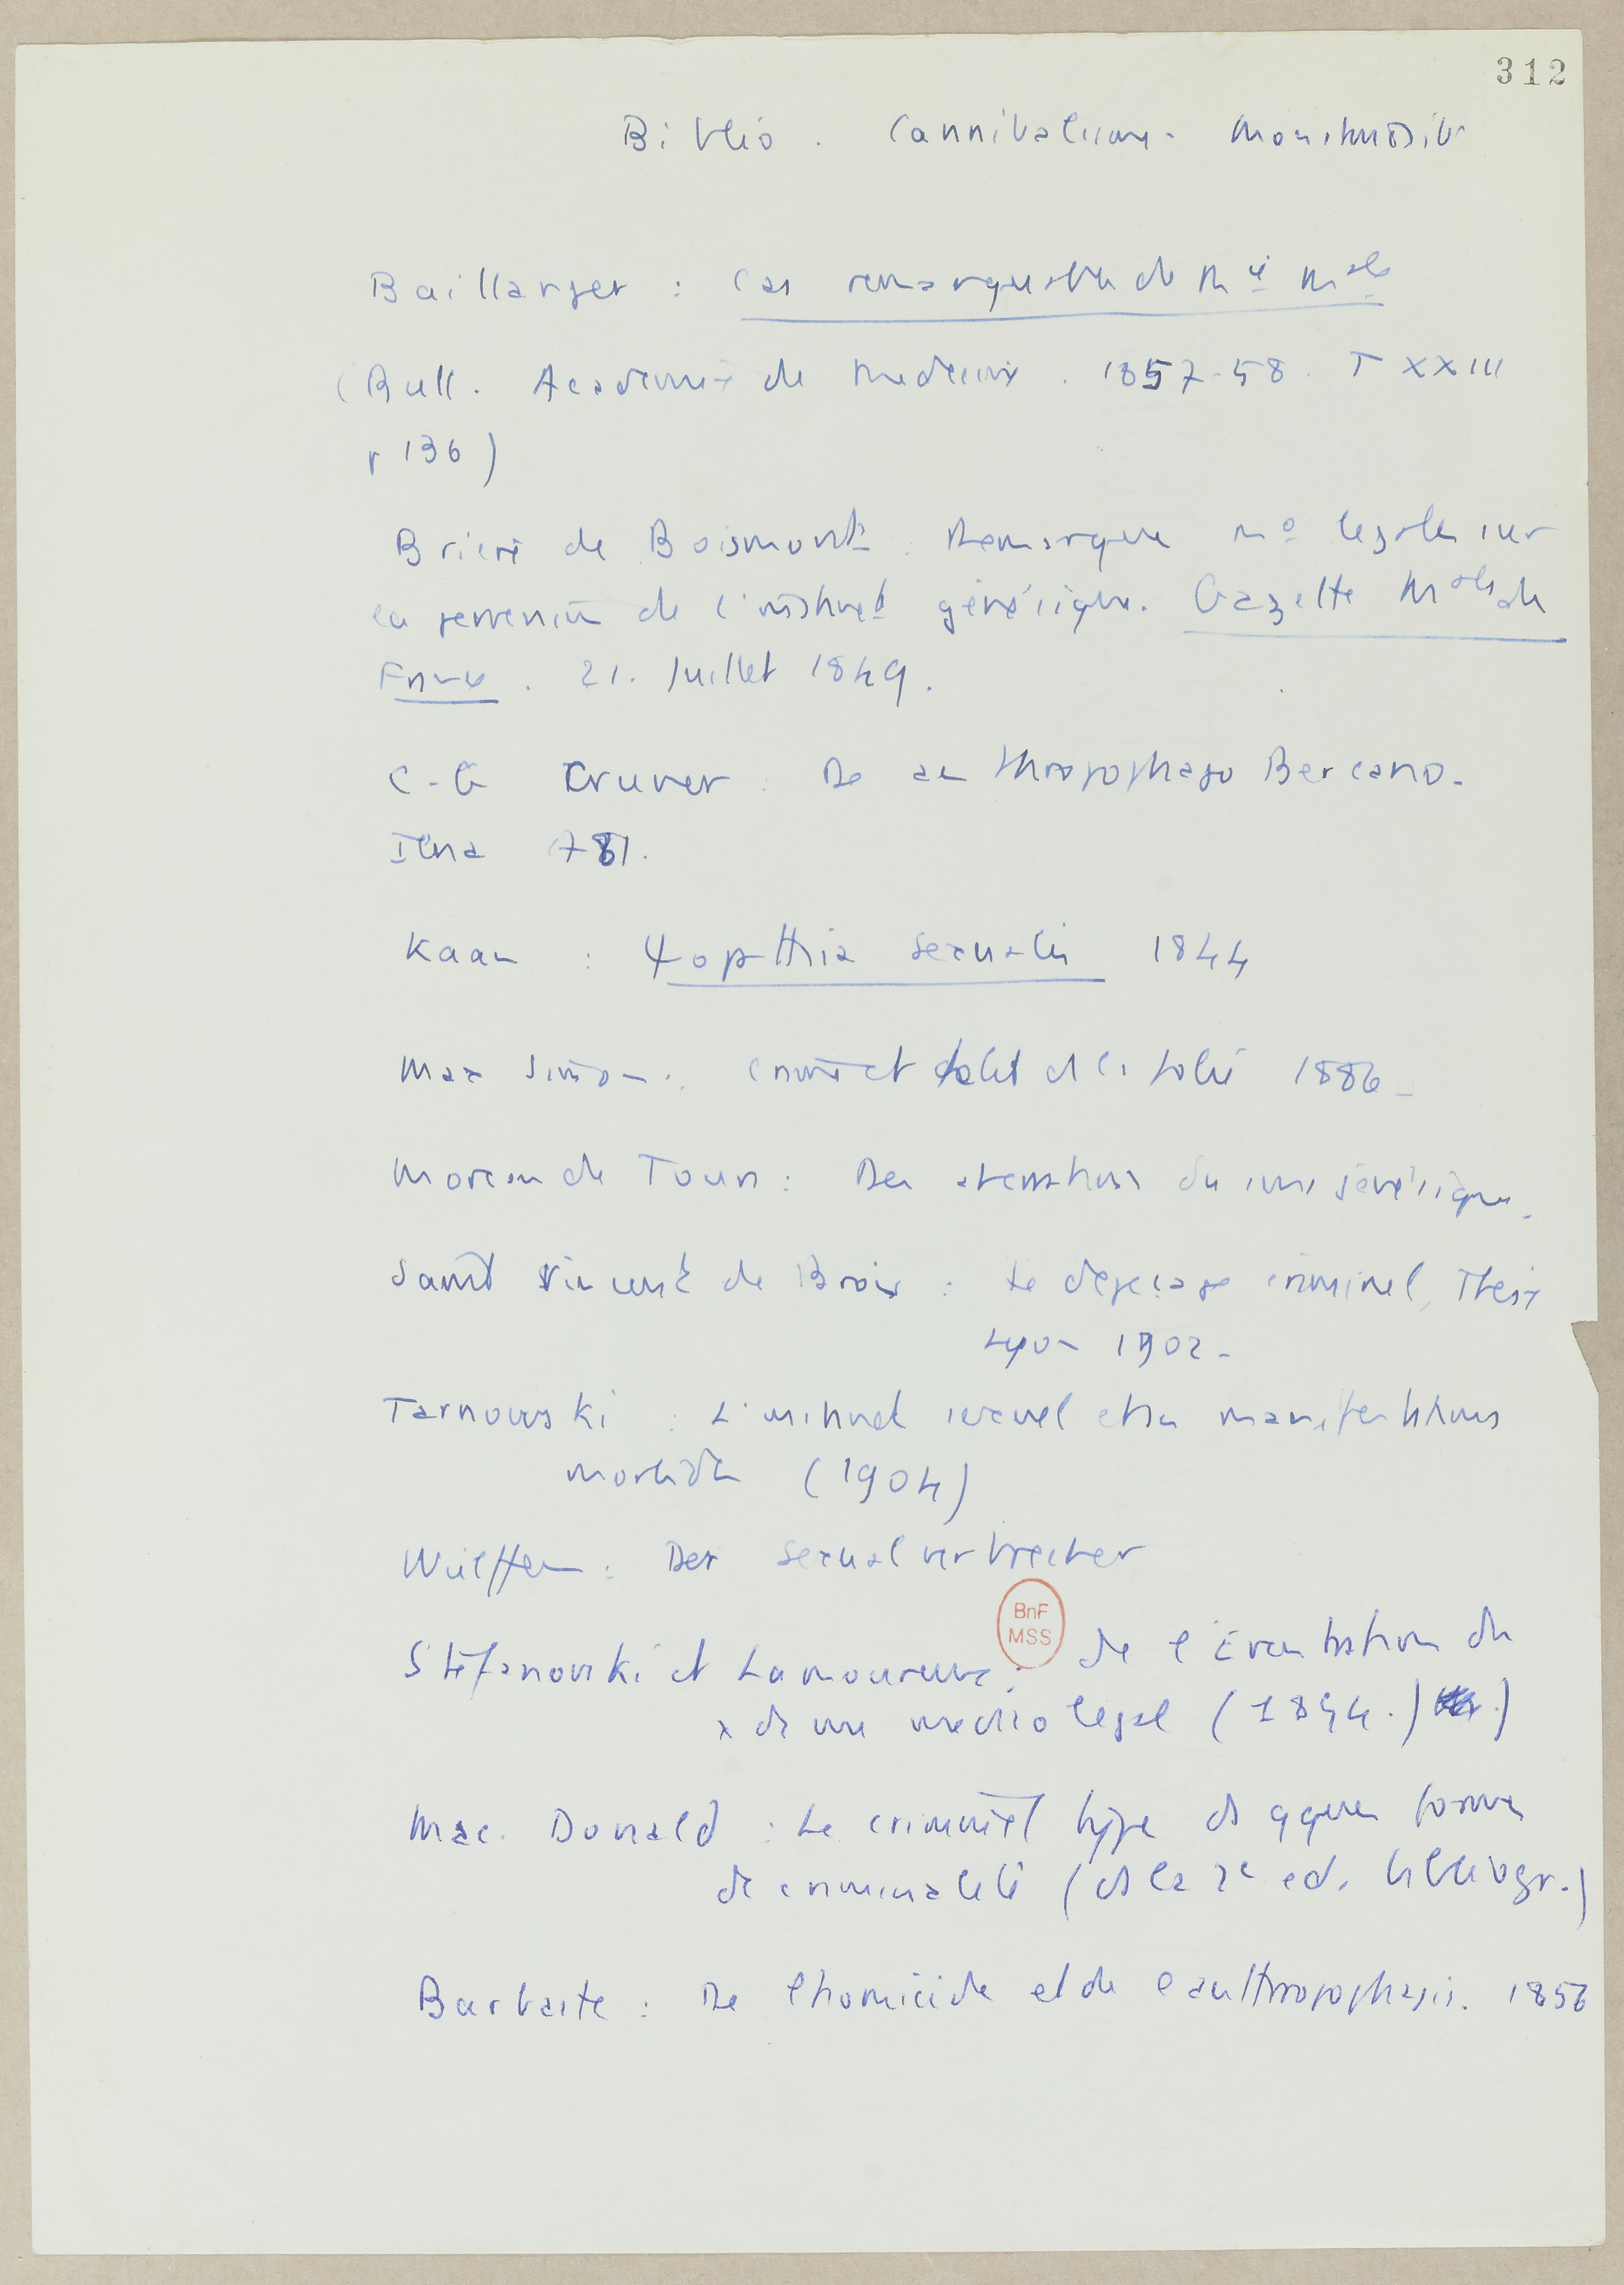 312
Biblio. Cannibalisme. Monstruosité
Baillarger : Cas remarquable de Mie Male
(Bull. Academie de Medecine. 1857-58. T XXIII
p 136)
Briere de Boismont. Remarques mo legales sur
la perversion de l'instinct génésique. Gazette Male de
France. 21. Juillet 1849.
C-G Gruner : De anthropophago Bercano.
Iena 1781.
Kaan : Ψopathia sexualis 1844
Max Simon : Crimes et delits ds la folie 1886
Moreau de Tours : Des aberrations du sens génésique.
Saint Vincent de Brois : Le depeçage criminel, These
Lyon 1902-
Tarnowski : L'instinct sexuel et ses manifestations
morbides (1904)
Wulffen : Der Sexualverbrecher
BnF
MSS
Stefanowski et Lamoureux : de l'Eventration du
x de vue medico legal (1894.)
Mac. Donald : Le criminel type ds qques formes
de criminalité (ds la 2e ed. bibliogr.)
Barbaste : De l'homicide et de l'anthropophagie. 1856